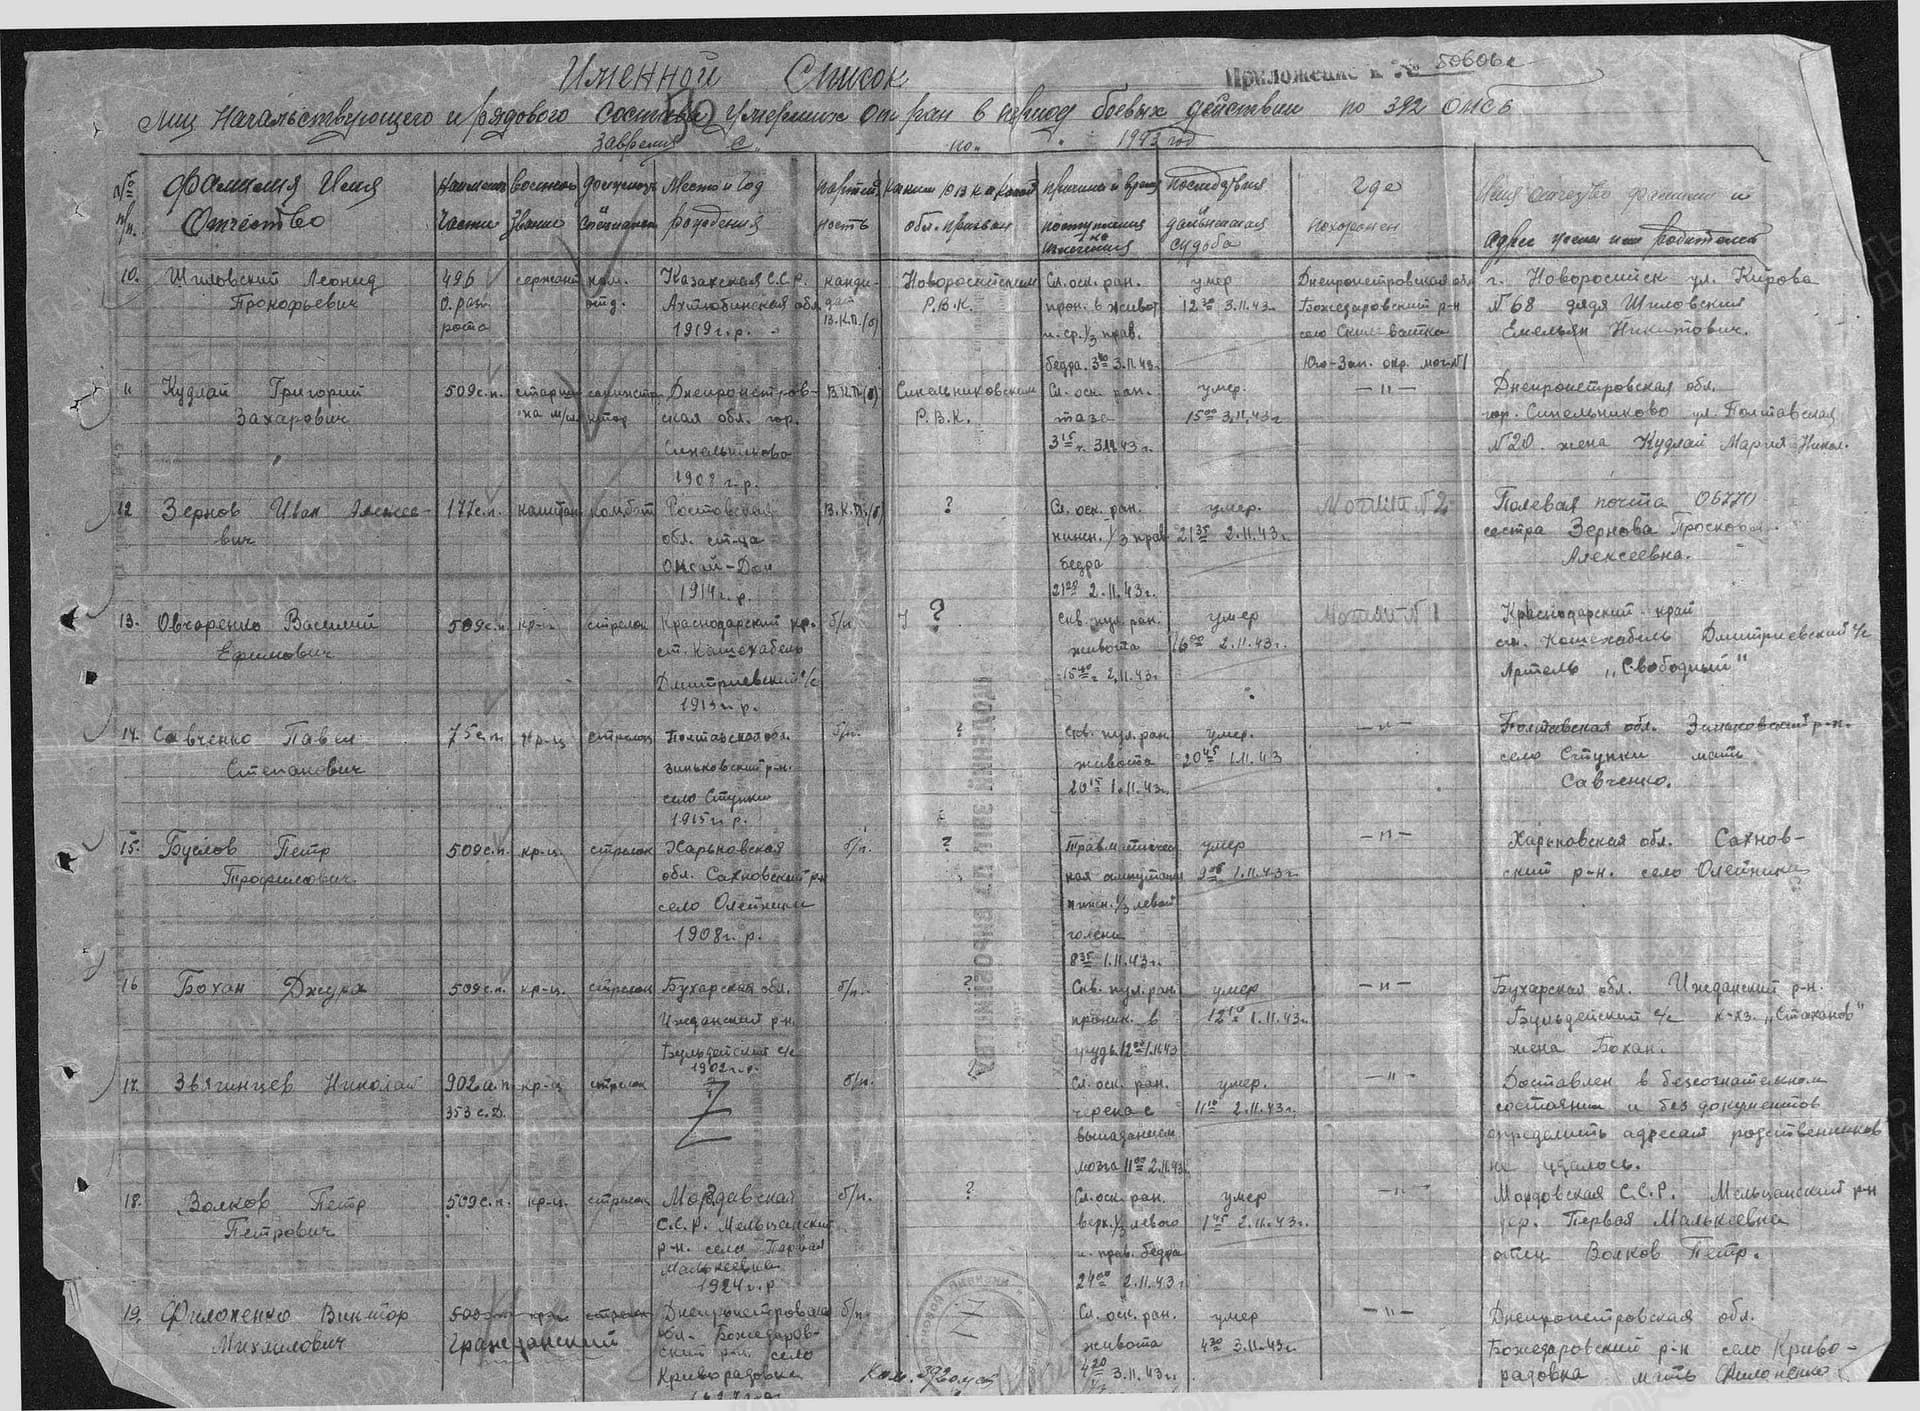 Именной Список
Приложение к № 50606с
Лиц Начальствующего и рядового состава умерших от ран в период боевых действий по 392 ОМСБ
за время с " по " 1943 год
№ п/п. Фамилия Имя Отчество
Наимен. части
Военное звание
Должность специальн.
Место и Год рождения
партий-ность
Каким РВК и какой обл. призван
Причина и время поступления на лечения
Последствия дальнейшая судьба
Где похоронен
Имя отчество фамилия и адрес жены или родителей
10. Шиловский Леонид Прокофьевич
496 о. раз. рота
сержант
ком. отд.
Казахская С.С.Р. Актюбинская обл. 1919 г.р.
канди-дат В.К.П./б/
Новоросийским Р.В.К.
Сл. оск. ран. прон. в живот и ср. 1/3 прав. бедра. 3 00 3.11.43г.
умер 12 30 3.11.43г.
Днепропетровская обл Божедаровский р-н село Юго-Зап. окр. мог. №1
г. Новоросийск ул. Кирова №68 дядя Шиловский Емельян Никитович.
11 Кудлай Григорий Захарович
509 с.п.
старши-на м/сл.
санинстр уктор
Днепропетров-ская обл. гор. Синельниково 1908 г.р.
В.К.П./б/
Синельниковским Р.В.К.
Сл. оск. ран. таза 3 15 г. 3.11.43г.
умер. 15 00 3.11.43г
— " —
Днепропетровская обл. гор. Синельниково ул. Полтавская №20. жена Кудлай Мария Никол.
12 Зернов Иван Алексее-вич
177 с.п.
капитан
комбат
Ростовская обл. ст-ца Оксай-Дон 1914 г.р.
В.К.П./б/
?
Сл. оск. ран. нижн. 1/3 прав бедра 21 20 2.11.43г.
умер. 21 35 2.11.43г.
Могила №2
Полевая почта 06770 сестра Зернова Просковья Алексеевна.
13. Овчаренко Василий Ефимович
509 с.п.
кр-ц
стрелок
Краснодарский кр. ст. Кошехабель Дмитриевский с/с 1913 г.р.
б/п
?
Скв. пул. ран. живота 15 40 г. 2.11.43г
умер 16 00 2.11.43г.
Могила №1
Краснодарский край ст. Кошехабль Дмитриевский с/с Артель „Свободный"
14. Савченко Павел Степанович
75 с.п.
кр-ц
стрелок
Полтавская обл. Зиньковский р-н. село Ступки 1915 г.р.
б/п.
?
Скв. пул. ран. живота 20 15 1.11.43г.
умер. 20 45 1.11.43
— " —
Полтавская обл. Зиньковский р-н. село Ступки мать Савченко.
15. Буслов Петр Трофимович.
509 с.п.
кр-ц.
стрелок
Харьковская обл. Сахновский р-н село Олейники 1908 г.р.
б/п.
?
Травматичес кая ампутация нижн. 1/3 левой голени 8 35 1.11.43г.
умер 9 00 1.11.43г
— " —
Харьковская обл. Сахнов-ский р-н. село Олейники
16 Бохан Джура
509 с.п.
кр-ц.
стрелок
Бухарская обл. Ижданский р-н. Бульдейский с/с 1902 г.р.
б/п.
?
Скв. пул. ран. проник. в грудь. 12 00 1.11.43
умер 12 10 1.11.43г.
— " —
Бухарская обл. Ижданский р-н. Бульдейский с/с к-хз. „Стаханов" жена Бохан.
17. Звягинцев Николай
902 с.п 353 с.д.
кр-ц
стрелок
б/п.
?
Сл. оск. ран. черепа с выпадением мозга 11 00 2.11.43г.
умер. 11 10 2.11.43г.
— " —
Доставлен в безсознательном состоянии и без документов определить адресат родственников не удалось.
18. Волков Петр Петрович
509 с.п.
кр-ц.
стрелок
Мордавская С.С.Р. Мельцанский р-н. село Первая Малькеевна 1924 г.р
б/п.
?
Сл. оск. ран. верх. 1/3 левого и прав. бедра 24 00 2.11.43г
умер 1 45 2.11.43г.
— " —
Мордовская С.С.Р. Мельцанский р-н дер. Первая Малькеевна отец Волков Петр.
19. Филоненко Виктор Михайлович
Гражданский
Днепропетровская обл. Божедаров-ский р-н. село Криворадовка
б/п.
Сл. оск. ран. живота 4 20 3.11.43г.
умер 4 30 3.11.43г.
— " —
Днепропетровская обл. Божедаровский р-н село Криво-радовка мать Филоненко
Ком. 392 омсб